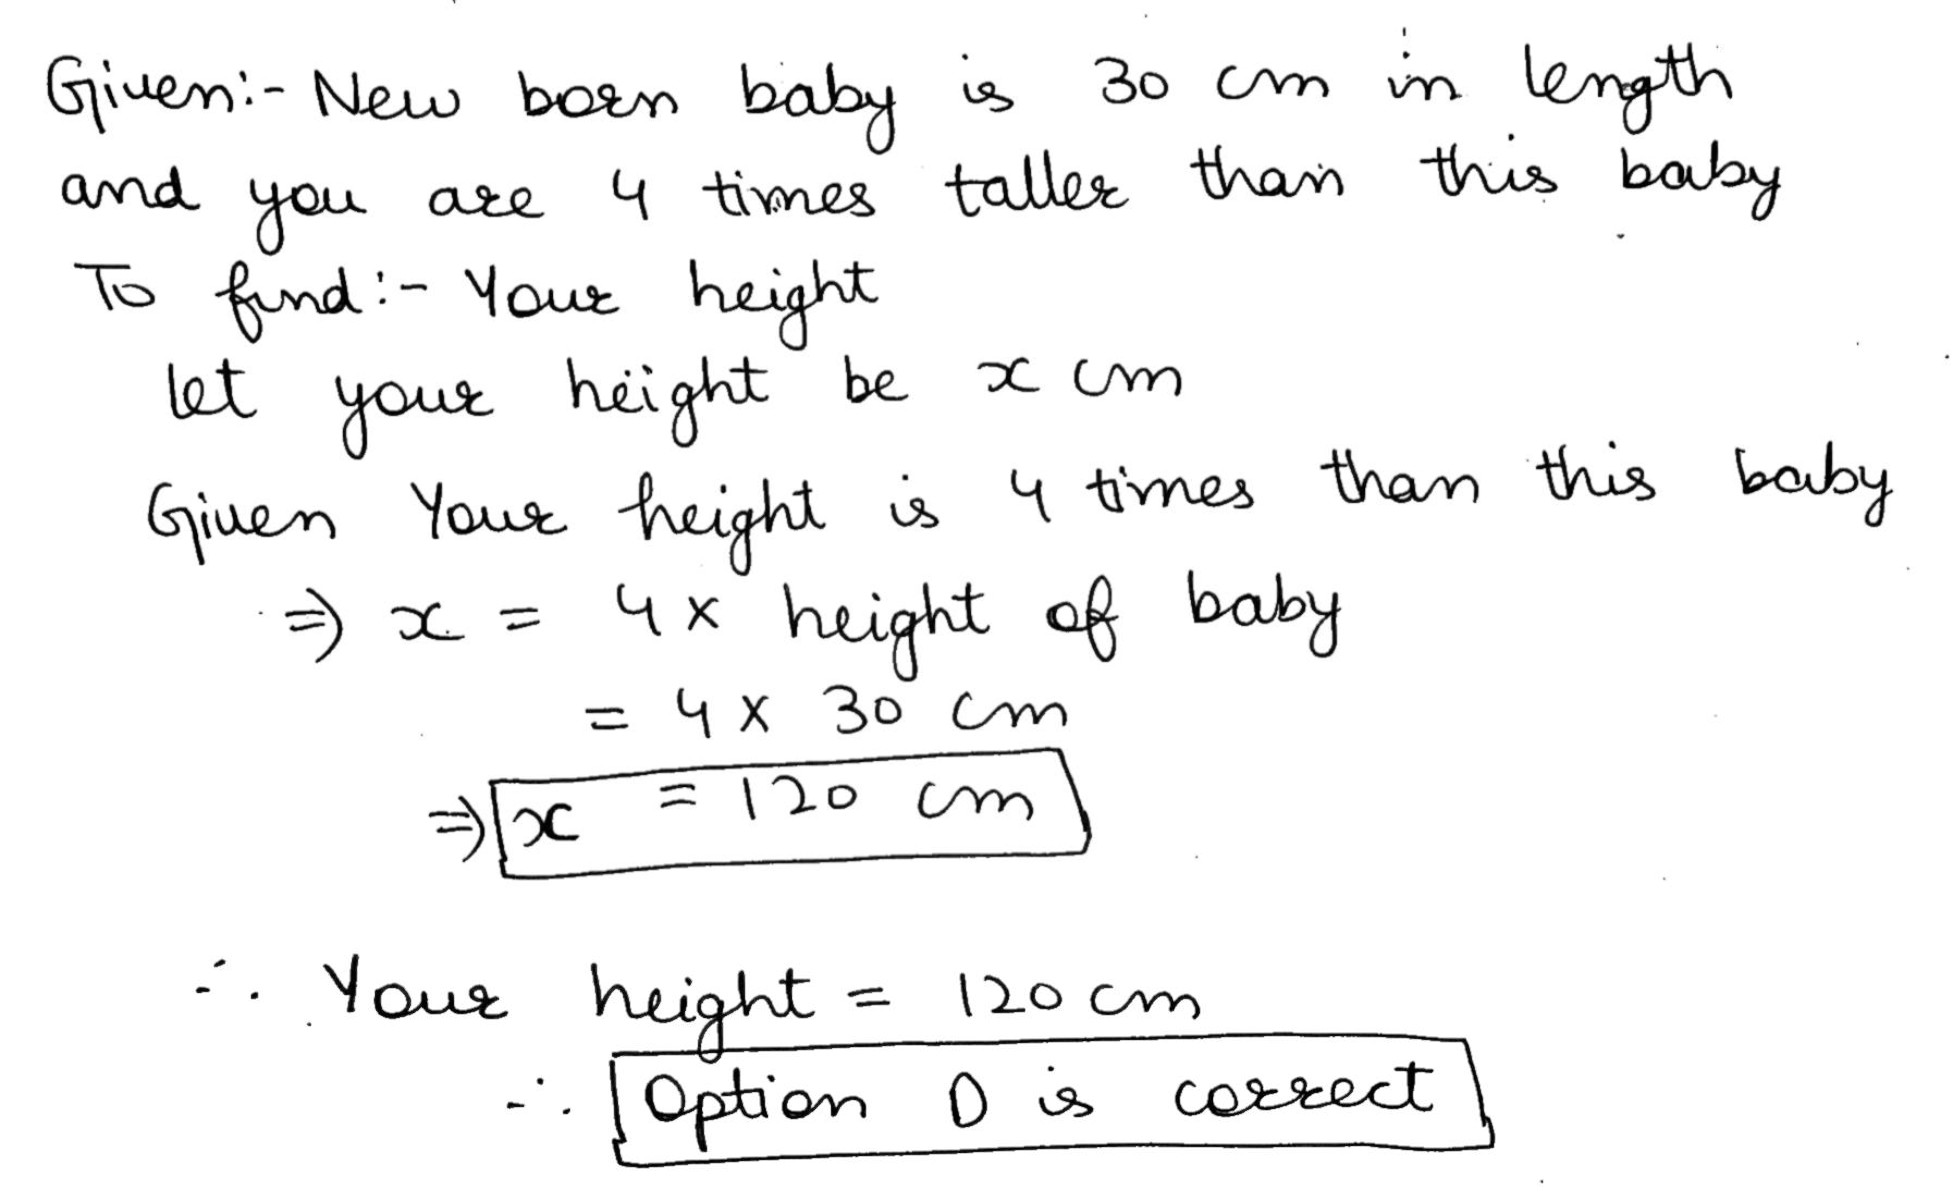 Given:- New born baby is 30 cm in length
and you are 4 times taller than this baby
To find:- Your height
let your height be x cm
Given Your height is 4 times than this baby
⇒ x = 4 × height of baby
= 4 × 30 cm
⇒ x = 120 cm
∴ Your height = 120 cm
∴ Option D is correct